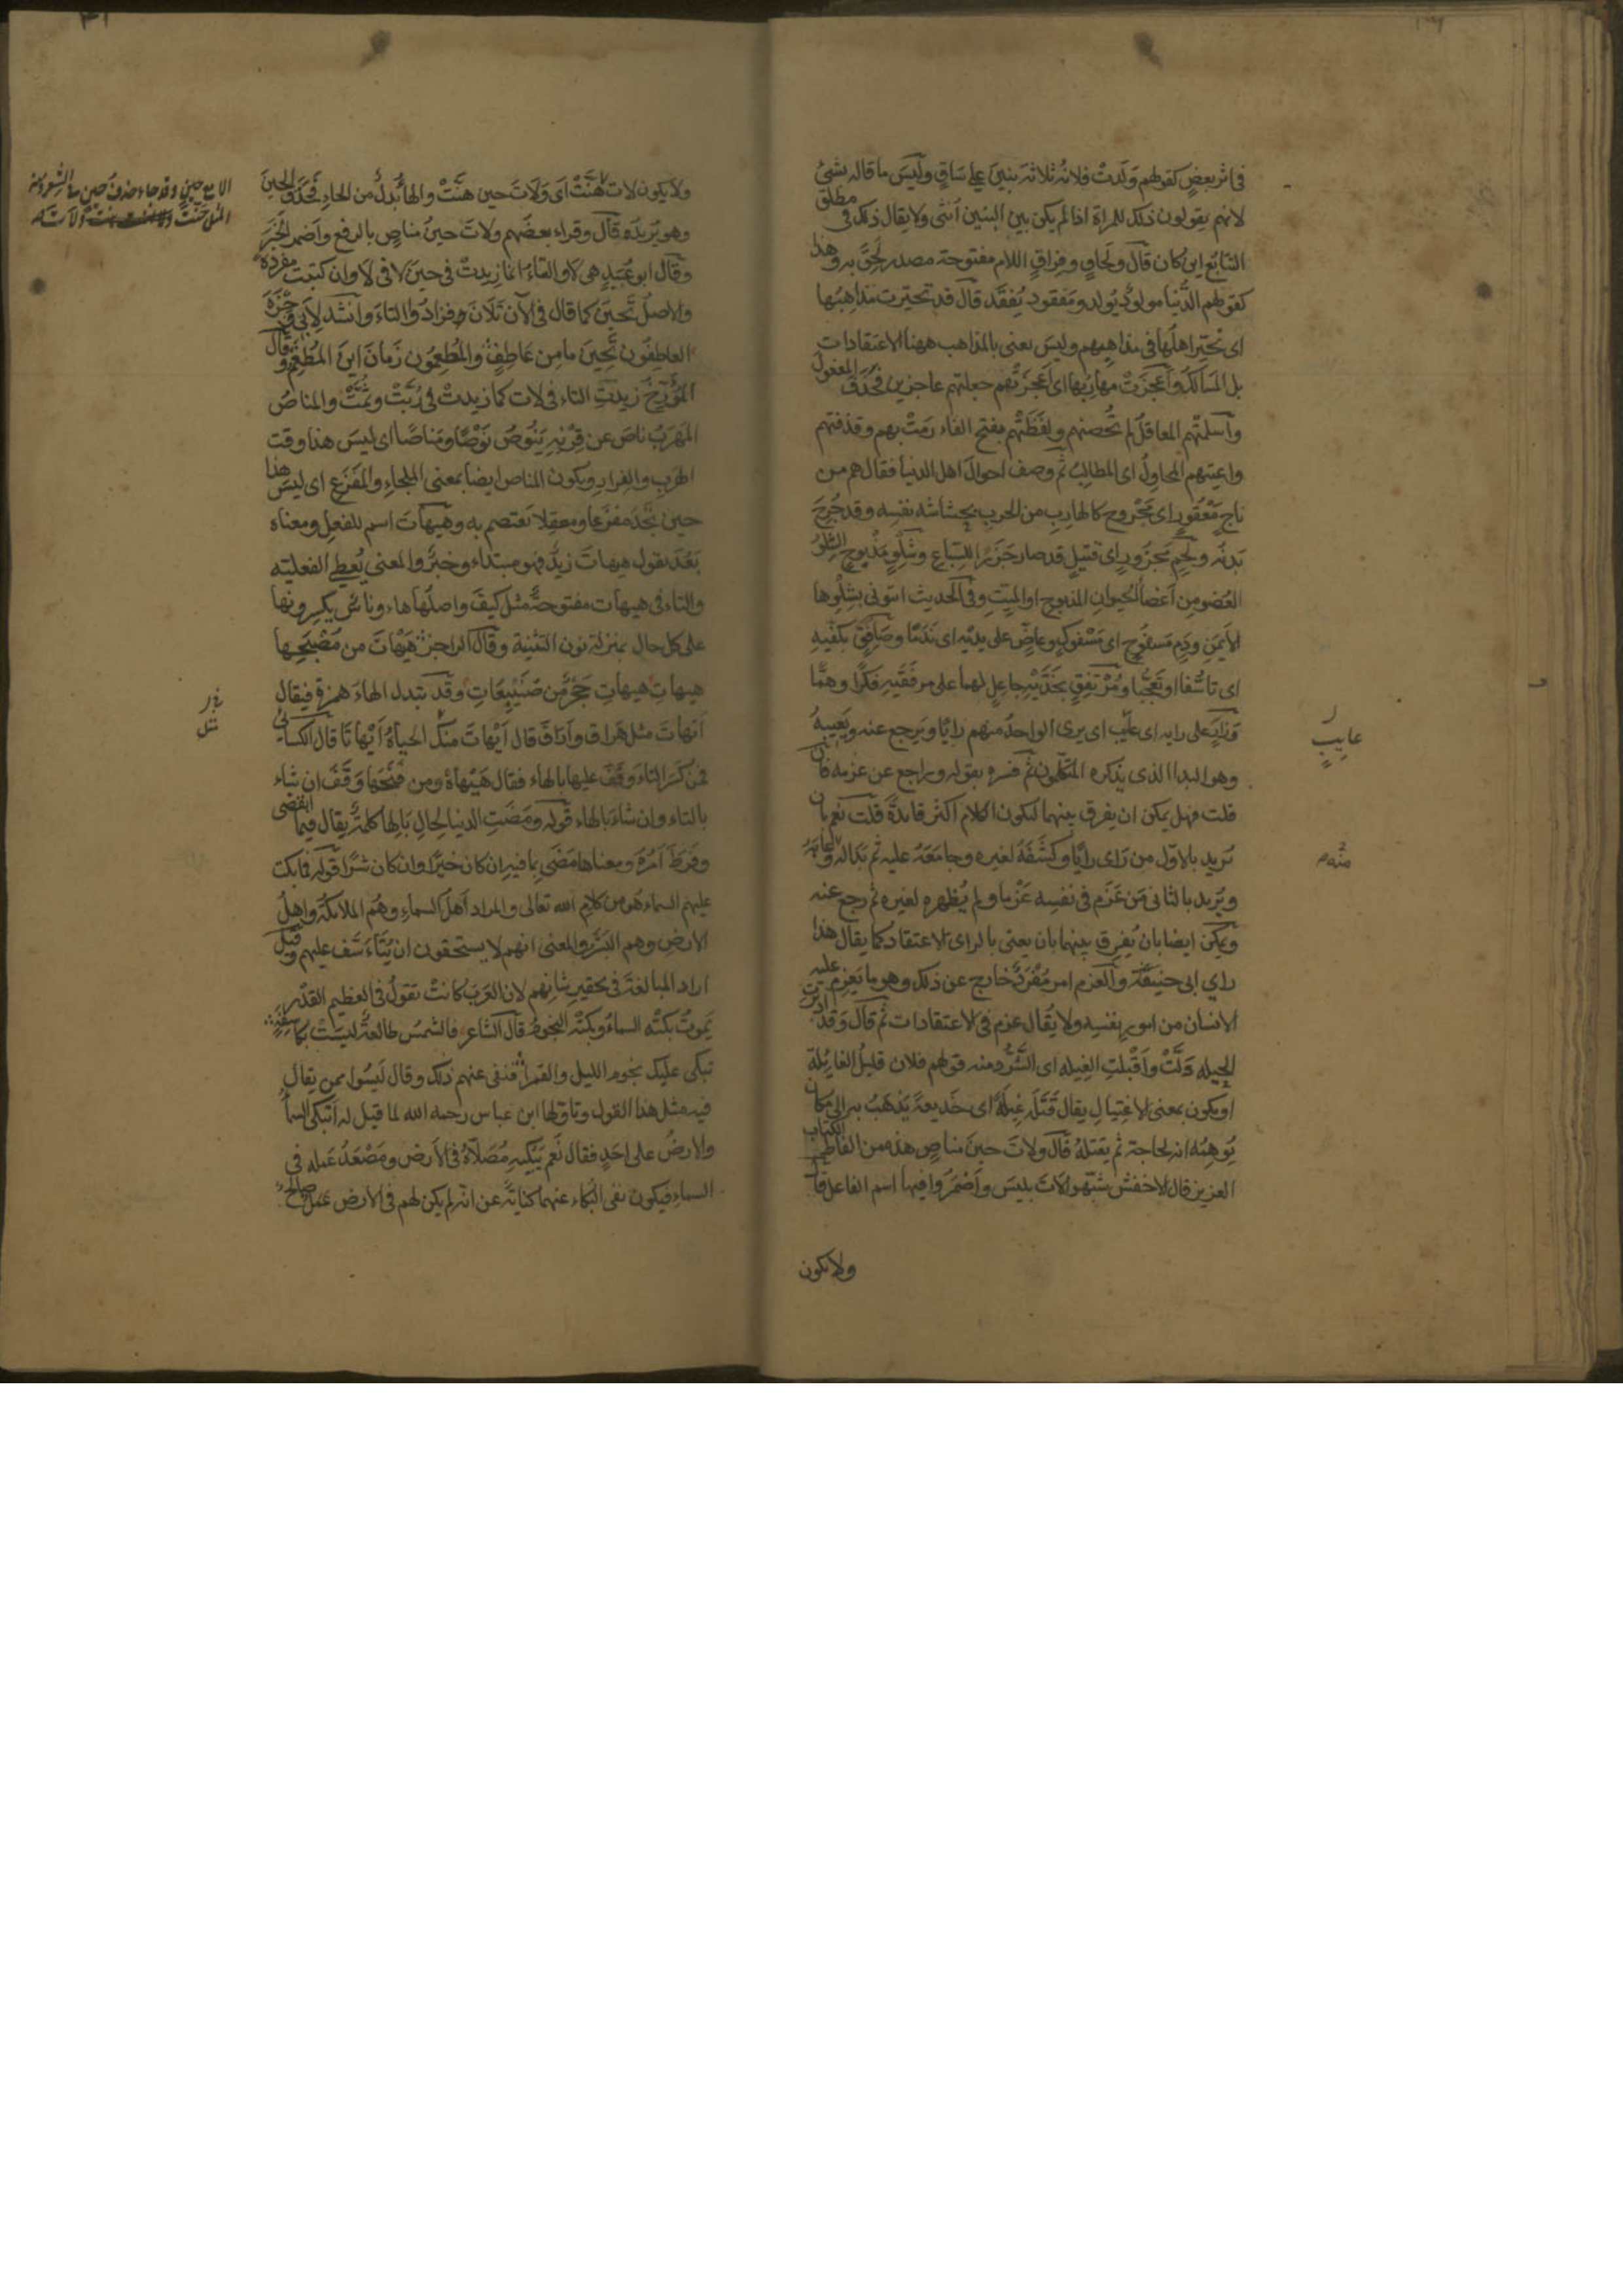 في اثر بعض كقولهم وَلَدتْ فلانة ثلاثة بنينَ على سَاقٍ وليسَ ما قاله بشئ
لانهم يقولون ذلك للمراة اذا لم يكن بين البنين أنثى ولا يقال ذلك في مطلق
التتابُع اين كان قال ولَحاقٍ وفراقٍ اللام مفتوحة مصدر لَحِقَ به وهذا
كقولهم الدُّنيا مولودٌ يُولد ومفقود يُفقَد قال قد تحيّرت مذاهِبُها
اى تحيّر اهلُها في مذاهبهم وليسَ يعنى بالمذاهب ههنا الاعتقادات
بل المسَالكَ وأَعجَزَتْ مهارِبُها اى اَعجزَتْهم جعلتهم عاجزين فحُذفَ المفعول
وأسلَمتْهم المعاقلُ لم تُحصنهم ولفَظَتْهم بفتح الفاء رمَتْ بهم وقذفتهم
واعيتهم المحاوِلُ اى المطالبُ ثم وصف احوالَ اهل الدنيا فقال هم من
ناجٍ مَعْقُورٍ اى مَجْروح كالهارِبِ من الحربِ بحشاشة نفسِه وقد جُرِحَ
بَدنُه ولَحمٍ مَجزُورٍ اى قتيلٍ قد صارَ جَزَرًا للسِّباعِ وشِلْوٍ مَذْبوحٍ الشِّلوُ
العُضو من اَعْضاء الحيوان المذبوحِ او الميّتِ وفى الحديث اىتونى بشِلْوها
الأيمَنِ ودَمٍ مَسفوحٍ اى مَسْفوكٍ وعاضٍّ على يديْه اى نَدَمًا وصَافِقٍ بكفّيهِ
اى تاسُّفا وتَعَجُّبا ومُرْتَفِقٍ بخَدَّيْهِ جاعلٍ لهما على مِرفَقَيهِ فكرًا وهمًّا
وَزارٍ على رايه اى عايب اى يرى الواحدُ منهم رايًا ويَرجع عنه ويَعيبهُ
وهو البدا الذى يذكره المتكلمون ثم فسره بقوله وراجع عن عزمه فان
قلت فهل يمكن ان يفرق بينهما ليكون الكلام اكثر فايدةً قلت نعم بان
يُريد بالاوّل من رَاى رايًا وكشَفَهُ لغيره وجامعَهُ عليه ثم بَدا له وعابَهُ
ويُريد بالثانى مَن عَزَم في نفسِه عَزْما ولم يُظهره لغيره ثم رجع عنه
ويمكن ايضا بان يُفرق بينهما بان يعنى بالراى الاعتقاد كما يقال هذا
راي ابى حنيفَة والعزم امر مُفْرَدٌ خارج عن ذلك وهو ما يَعزِم عليه
الانسان من امورِ نفسِه ولا يُقال عزم في الاعتقادات ثم قال وَقد ادبرت
الحِيله وَلَّتْ وأَقْبلتِ الغِيله اى الشَّرُّ ومنه قولهم فلان قليلُ الغايلة
او يكون بمعنى الاغتِيال يقال قَتَلَه غِيلةً اى خَديعةً يَذهَبُ به الى مكان
يُوهِمُه انه لحاجة ثم يقتلهُ قال ولاتَ حينَ مناصٍ هذه من الفاظ الكتاب
العزيز قال الاخفش شبّهوا لاتَ بليسَ وأَضْمَرُوا فيها اسم الفاعل قال
ولا تكون
عايبٍ
ولا يكون لات هَنَّتْ اى وَلاتَ حين هنَّتْ والهاءُ بدلٌ من الحاءِ فحذفَ الحينَ
وهو يُريدُه قال وقراء بعضهم ولاتَ حينُ مناصٍ بالرفع وأضمر الخبَرَ
وقال ابو عُبَيدٍ هى لا والتاءُ انما زِيدتْ في حينَ لا في لَا وان كتبت مفردة
والاصلُ تَحينَ كما قال في الآن تَلانَ فزادُوا التاءَ وأنشد لِأَبى وجزة
العاطِفَون تَحِينَ ما مِن عَاطِفٍ والمُطعِمُون زَمانَ اينَ المُطْعِمُ وقال
المُؤَرّجُ زيدتِ التاء في لات كما زيدتْ في رُبّتْ وثُمّتْ والمناصُ
المَهرَبُ ناصَ عن قِرْنِه يَنُوصُ نَوْصًا ومَناصًا اى ليسَ هذا وقت
الهرَبِ والفِرارِ ويكون المناص ايضا بمعنى الملجاءِ والمَفزَعِ اى ليسَ هذا
حينَ تَجدَ مفزعا ومعقِلا تعتصم به وهَيهَاتَ اسم للفعل ومعناه
بَعُدَ يقول هيهاتَ زيدٌ فهو مبتداء وخبرٌ والمعنى يُعطى الفعلية
والتاء في هيهات مفتوحةٌ مثل كيفَ واصلُها هاء وناسٌ يكسِرونها
على كل حال بمنزلة نون التثنية وقال الراجز هَيْهَاتَ من مُصْبَحِها
هيهاتِ هيهاتِ حَجْرٌ من صُنَيْبِعَاتِ وقد تبدل الهاءَ همزة فيقال
أَيْهات مثل هَراقَ وأَراقَ قال أَيْهاتَ منكَ الحياةُ أَيْهاتَا قال الكسائى
فمن كسَر التاء وقَفَ عليها بالهاء فقال هَيْهاهْ ومن فتَحَها وَقَفَ ان شاء
بالتاء وان شاءَ بالهاء قوله ومَضَتِ الدنيا لِحالِ بَالِها كلمةٌ يقال فيما انقضى
وفرَطَ اَمرُهُ ومعناها مَضَى بِما فيه ان كان خيرًا وان كان شرًا قوله فما بكت
عليهم السماءُ هُو من كلام الله تعالى والمراد أهلُ السماءِ وهُم الملائكةُ واهلُ
الارض وهم البَشَر والمعنى انهم لا يستحقون ان يُتَأَسَّف عليهم وقيل
اراد المبالغةَ في تحقيرِ شانِهم لان العَربَ كانتْ تقولُ في العظيم القدْرِ
يَموتُ بكَتْه السماءُ وبكتْه النجومُ قال الشاعر فالشمسُ طالعةٌ ليسَتْ بكاسِفَةٍ
تبكى عليكَ نجومَ الليل والقمرا فنفى عنهم ذلك وقال لَيسُوا ممن يقال
فيه مثل هذا القول وتاوّلها ابن عباس رحمه الله لما قيل له أتبكى السماءُ
والارضُ على احَدٍ فقال نعَم يَبكيهِ مُصَلّاهُ في الأرض ومَصْعَدُ عَمله في
السماءِ فيكون نفى البُكاء عنهما كنايَةً عن انه لم يكن لهم في الارض عمَل صالح